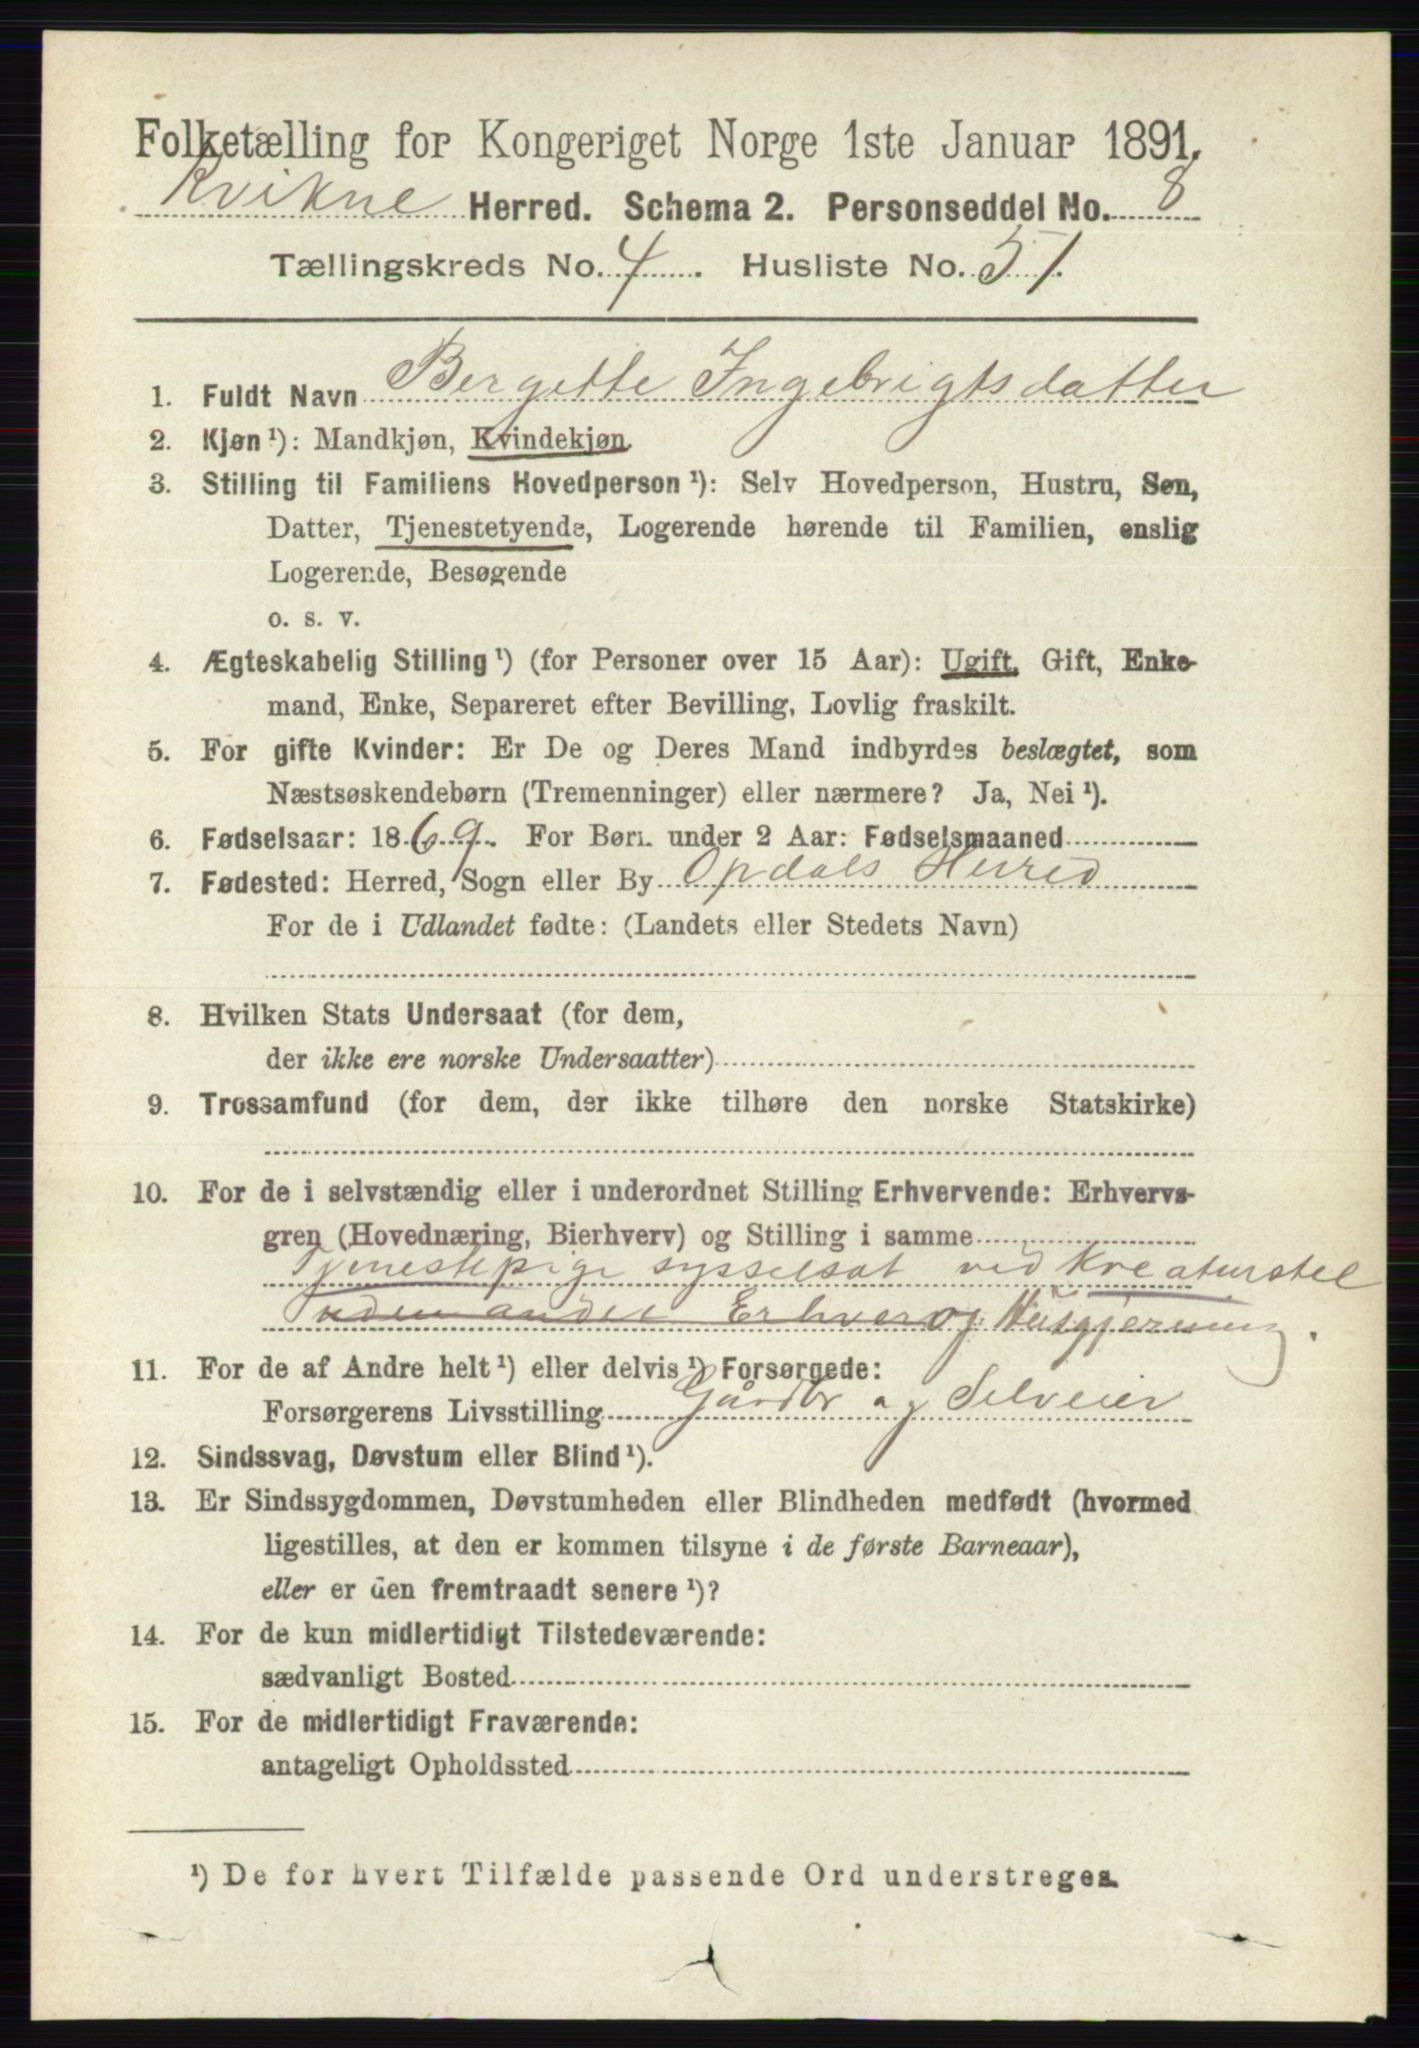 Folketælling for Kongeriget Norge 1ste Januar 1891.
Kvikne Herred. Schema 2. Personseddel No. 8
Tællingskreds No. 4. Husliste No. 51.
1. Fuldt Navn Bergitte Ingebrigtsdatter
2. Kjøn ¹): Mandkjøn, Kvindekjøn.
3. Stilling til Familiens Hovedperson ¹): Selv Hovedperson, Hustru, Søn,
Datter, Tjenestetyende, Logerende hørende til Familien, enslig
Logerende, Besøgende
o. s. v.
4. Ægteskabelig Stilling ¹) (for Personer over 15 Aar): Ugift, Gift, Enke-
mand, Enke, Separeret efter Bevilling, Lovlig fraskilt.
5. For gifte Kvinder: Er De og Deres Mand indbyrdes beslægtet, som
Næstsøskendebørn (Tremenninger) eller nærmere? Ja, Nei ¹).
6. Fødselsaar: 1869. For Børn under 2 Aar: Fødselsmaaned
7. Fødested: Herred, Sogn eller By Opdals Herred
For de i Udlandet fødte: (Landets eller Stedets Navn)
8. Hvilken Stats Undersaat (for dem,
der ikke ere norske Undersaatter)
9. Trossamfund (for dem, der ikke tilhøre den norske Statskirke)
10. For de i selvstændig eller i underordnet Stilling Erhvervende: Erhvervs-
gren (Hovednæring, Bierhverv) og Stilling i samme
Tjenestepige sysselsat ved Kreaturstel
uden andet Erhverv og Husgjerning.
11. For de af Andre helt ¹) eller delvis ¹) Forsørgede:
Forsørgerens Livsstilling Gårdbr og Selveier
12. Sindssvag, Døvstum eller Blind ¹).
13. Er Sindssygdommen, Døvstumheden eller Blindheden medfødt (hvormed
ligestilles, at den er kommen tilsyne i de første Barneaar),
eller er den fremtraadt senere ¹)?
14. For de kun midlertidigt Tilstedeværende:
sædvanligt Bosted
15. For de midlertidigt Fraværende:
antageligt Opholdssted
¹) De for hvert Tilfælde passende Ord understreges.